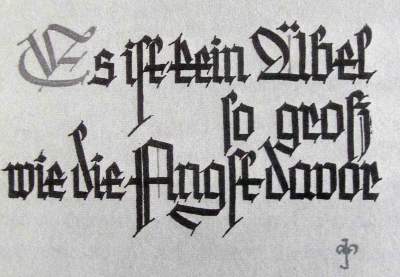 Es ist kein Übel
so groß
wie die Angst davor